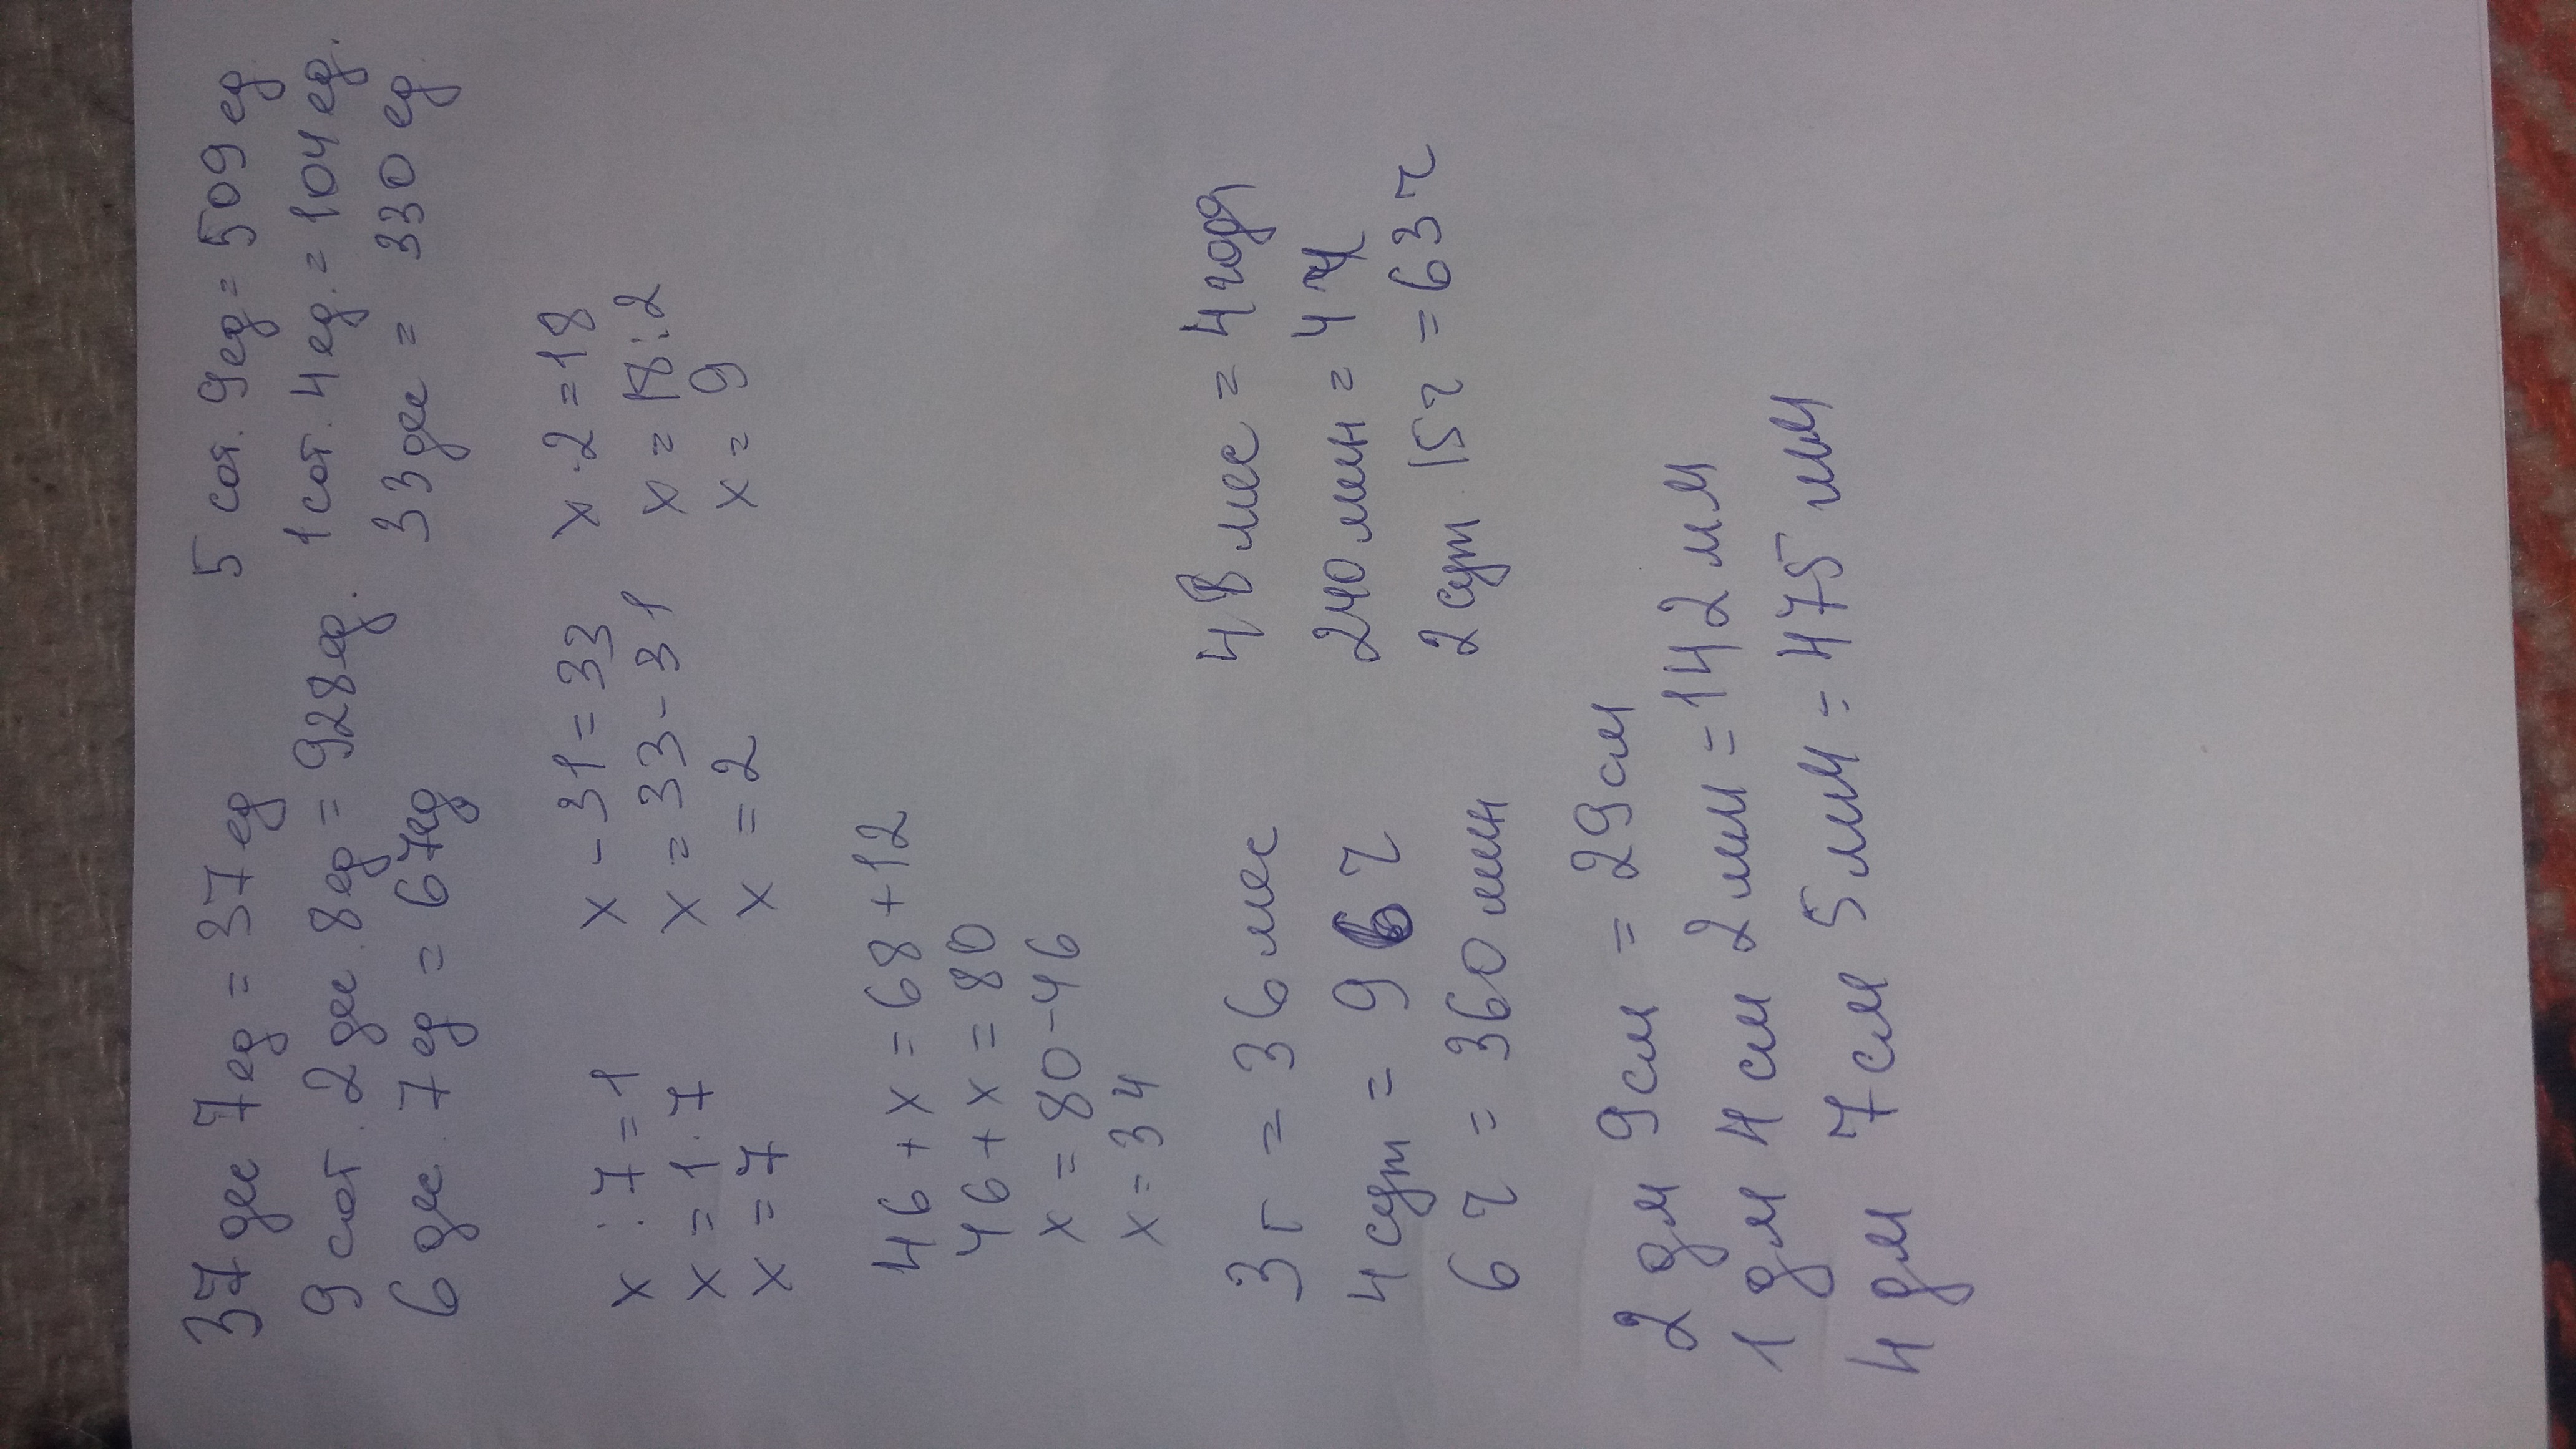 37 дес 7 ед = 37 ед 5 сот. 9 ед = 509 ед
9 сот. 2 дес. 8 ед = 928 ед. 1 сот. 4 ед. = 104 ед.
6 дес. 7 ед = 67 ед 33 дес = 330 ед.
x : 7 = 1 x - 31 = 33 x · 2 = 18
x = 1 · 7 x = 33 - 31 x = 18 : 2
x = 7 x = 2 x = 9
46 + x = 68 + 12
46 + x = 80
x = 80 - 46
x = 34
3 г = 36 мес 48 мес = 4 года
4 сут = 96 ч 240 мин = 4 ч
6 ч = 360 мин 2 сут. 15 ч = 63 ч
2 дм 9 см = 29 см
1 дм 4 см 2 мм = 142 мм
4 дм 7 см 5 мм = 475 мм